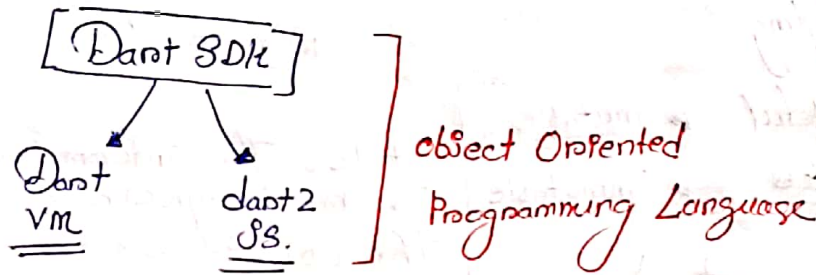 [Dart SDK]
Dart
VM
dart2
JS.
object Oriented
Programming Language